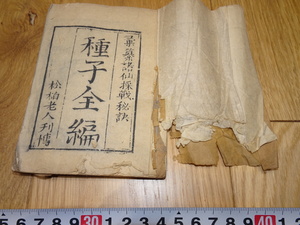 諸仙採戰秘訣
種子全編
松柏老人刊傳
5 6 7 8 9 30 1 2 3 4 5 6 7 8 9 40 1 2